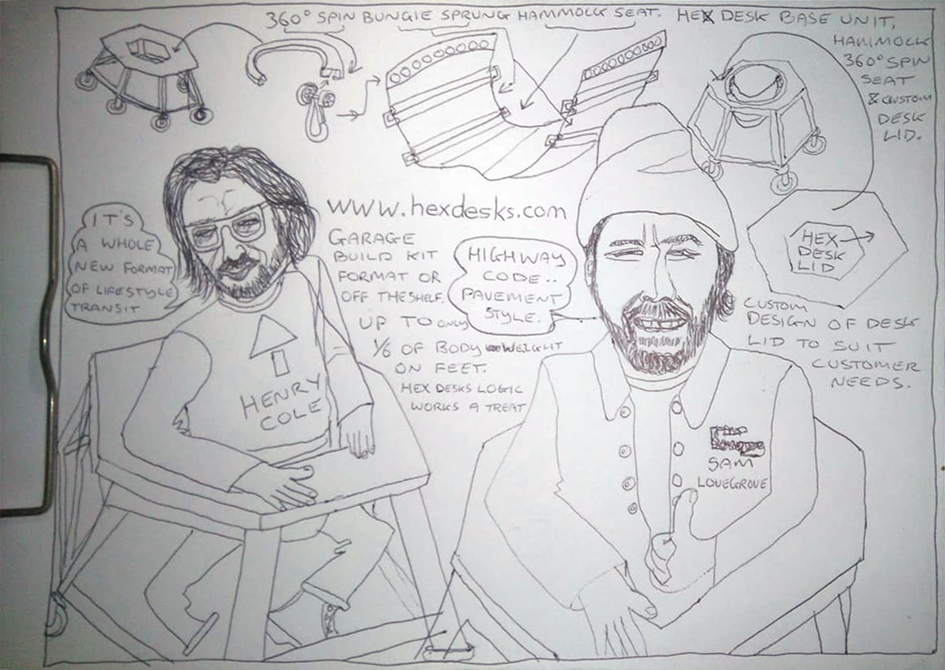 360° SPIN BUNGIE SPRUNG HAMMOCK SEAT.
HEX DESK BASE UNIT,
HAMMOCK
360° SPIN
SEAT
& CUSTOM
DESK
LID.
www.hexdesks.com
IT'S
A WHOLE
NEW FORMAT
OF LIFESTYLE
TRANSIT
GARAGE
BUILD KIT
FORMAT OR
OFF THE SHELF.
UP TO ONLY
1/6 OF BODY WEIGHT
ON FEET.
HEX DESKS LOGIC
WORKS A TREAT
HIGHWAY
CODE..
PAVEMENT
STYLE.
HEX
DESK
LID
CUSTOM
DESIGN OF DESK
LID TO SUIT
CUSTOMER
NEEDS.
HENRY
COLE
SAM
LOVEGROVE